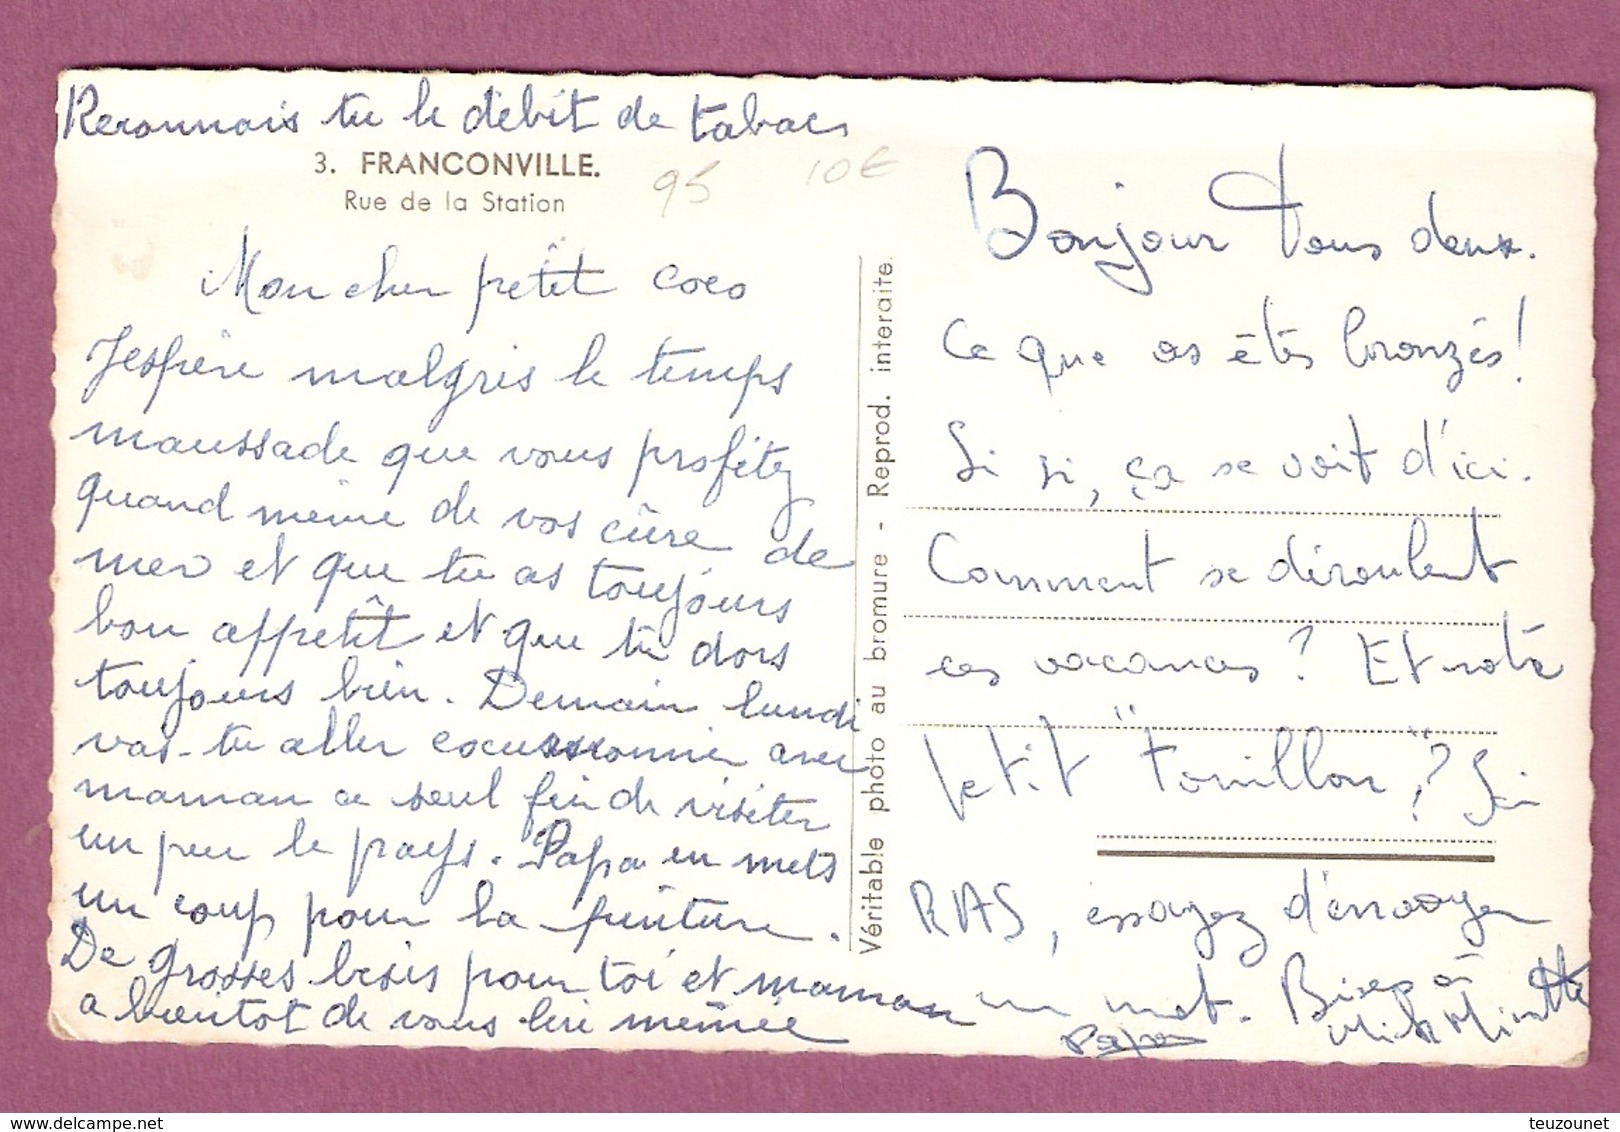 Reconnais tu le débit de tabacs
3. FRANCONVILLE.
Rue de la Station
95
10€
Mon cher petit coco
Jespère malgrés le temps
maussade que vous profitez
quand meme de vos cure de
mer et que tu as toujours
bon appetit et que tu dors
toujours bien. Demain lundi
vas-tu aller avec
maman a seul fin de visiter
un peu le pays. Papa en mets
un coup pour la peinture.
De grosses besis pour toi et maman
a bientot de vous lire mémée
Papa
Véritable photo au bromure - Reprod. interdite.
Bonjour Vous deux.
Ce que vs êtes bronzés!
Si si, ça se voit d'ici.
Comment se déroulent
ces vacances? Et notre
petit "Touillon"? Ici
RAS, essayez d'envoyer
un mot. Bises à
Minette
www.delcampe.net
teuzounet